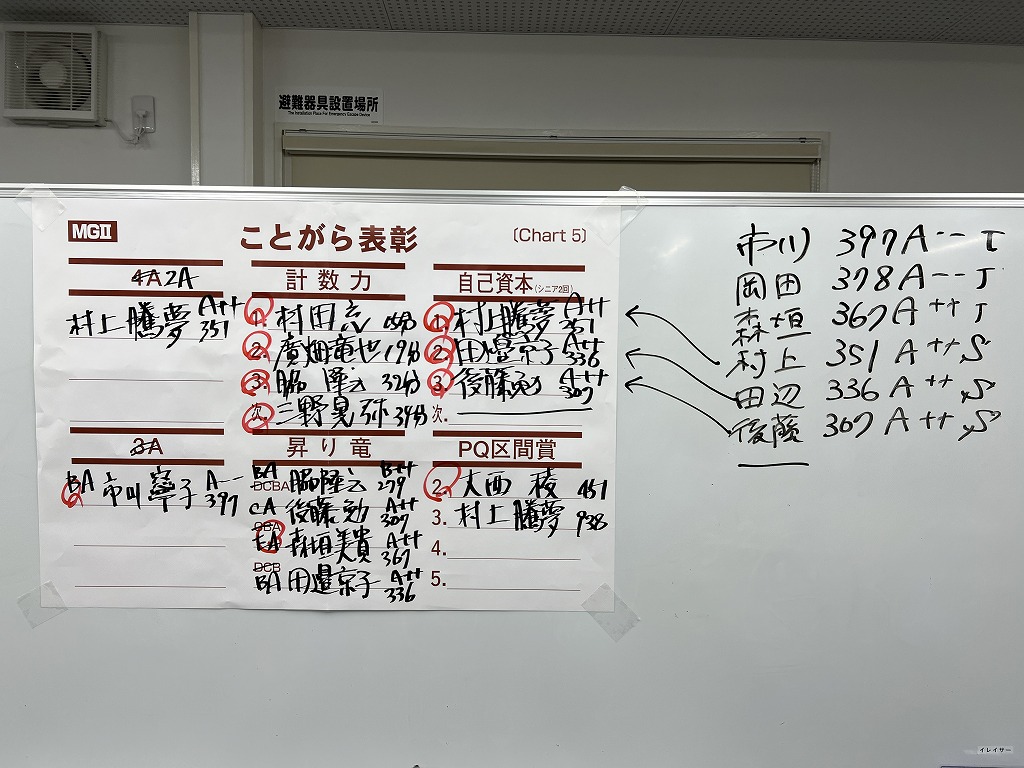 避難器具設置場所
The Installation Place For Emergency Escape Device
MGII
ことがら表彰
〔Chart 5〕
4A 2A
村上騰夢 A++ 351
計数力
1. 村田
2. 廣畑竜也 19分
3. 脇 隆 32分
次. 三野晃弥 34分
自己資本(シニア2回)
1. 村上騰夢 A++ 351
2. 田邉京子 A++ 336
3. 後藤勉 A++ 307
次.
3A
BA 市川寧子 A-- 397
昇り竜
BA DCBA 脇隆 B++ 279
CA 後藤勉 A++ 307
CBA
EA 森垣美貴 A++ 367
DCB
BA 田邉京子 A++ 336
PQ区間賞
2. 大西 稜 451
3. 村上騰夢 938
4.
5.
市川 397 A-- J
岡田 378 A-- J
森垣 367 A++ J
村上 351 A++ S
田辺 336 A++ S
後藤 307 A++ S
イレイサー